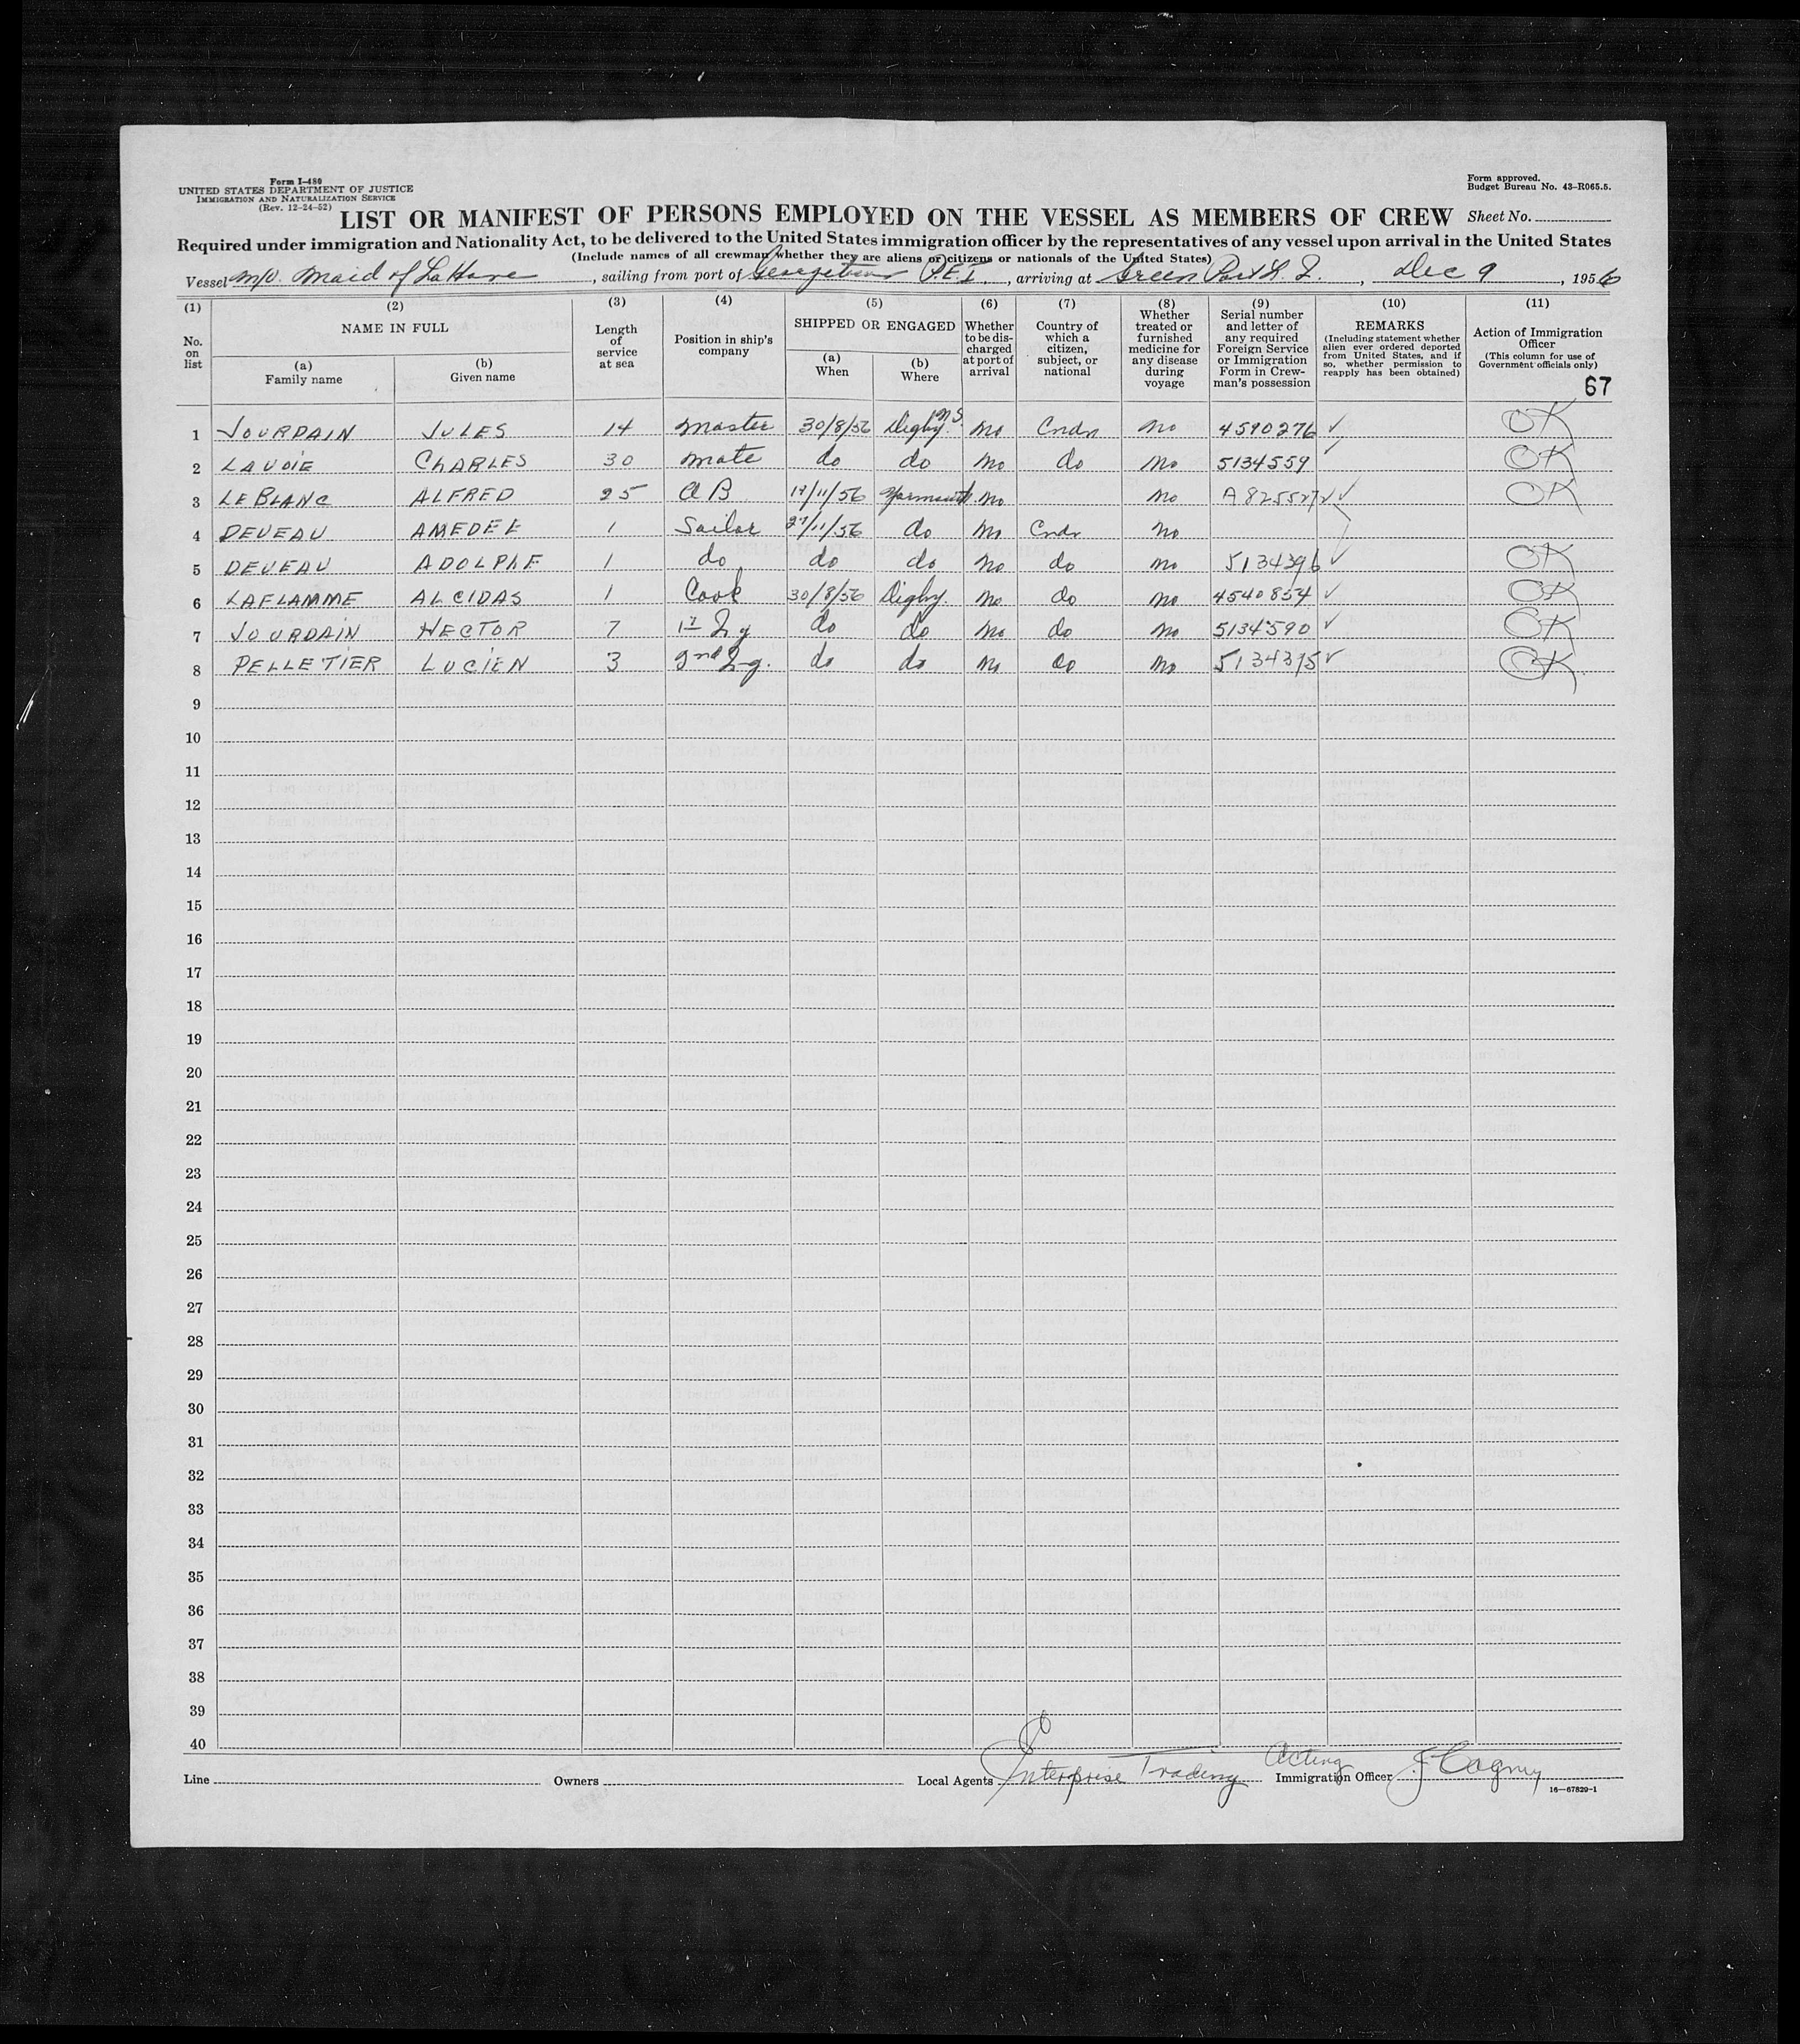 Form I-480
UNITED STATES DEPARTMENT OF JUSTICE
IMMIGRATION AND NATURALIZATION SERVICE
(Rev. 12-24-52)
Form approved.
Budget Bureau No. 43-R065.5.
LIST OR MANIFEST OF PERSONS EMPLOYED ON THE VESSEL AS MEMBERS OF CREW Sheet No.
Required under immigration and Nationality Act, to be delivered to the United States immigration officer by the representatives of any vessel upon arrival in the United States
(Include names of all crewman whether they are aliens or citizens or nationals of the United States)
Vessel M/V. Maid of LaHave, sailing from port of Georgetown P.E.I., arriving at Green Port L. I., Dec 9, 1956
(1) (2) (3) (4) (5) (6) (7) (8) (9) (10) (11)
No. on list
NAME IN FULL
(a) Family name
(b) Given name
Length of service at sea
Position in ship's company
SHIPPED OR ENGAGED
(a) When
(b) Where
Whether to be discharged at port of arrival
Country of which a citizen, subject, or national
Whether treated or furnished medicine for any disease during voyage
Serial number and letter of any required Foreign Service or Immigration Form in Crewman's possession
REMARKS
(Including statement whether alien ever ordered deported from United States, and if so, whether permission to reapply has been obtained)
Action of Immigration Officer
(This column for use of Government officials only)
67
1 JOURDAIN JULES 14 Master 30/8/56 Digby N.S. No Cndn No 4590276 ✓ OK
2 LAVOIE CHARLES 30 Mate do do No do No 5134559 ✓ OK
3 LEBLANC ALFRED 25 A B /11/56 Yarmouth No No ✓ OK
4 DEVEAU AMEDEE 1 Sailor 27/11/56 do No Cndn No
5 DEVEAU ADOLPHE 1 do do do No do No 5134396 ✓ OK
6 LAFLAMME ALCIDAS 1 Cook 30/8/56 Digby. No do No 4540854 ✓ OK
7 JOURDAIN HECTOR 7 1st do do No do No 5134590 ✓ OK
8 PELLETIER LUCIEN 3 2nd do do No do No 5134395 ✓ OK
9
10
11
12
13
14
15
16
17
18
19
20
21
22
23
24
25
26
27
28
29
30
31
32
33
34
35
36
37
38
39
40
Line Owners Local Agents Enterprise Trading Acting Immigration Officer J Cagney
16—67829-1